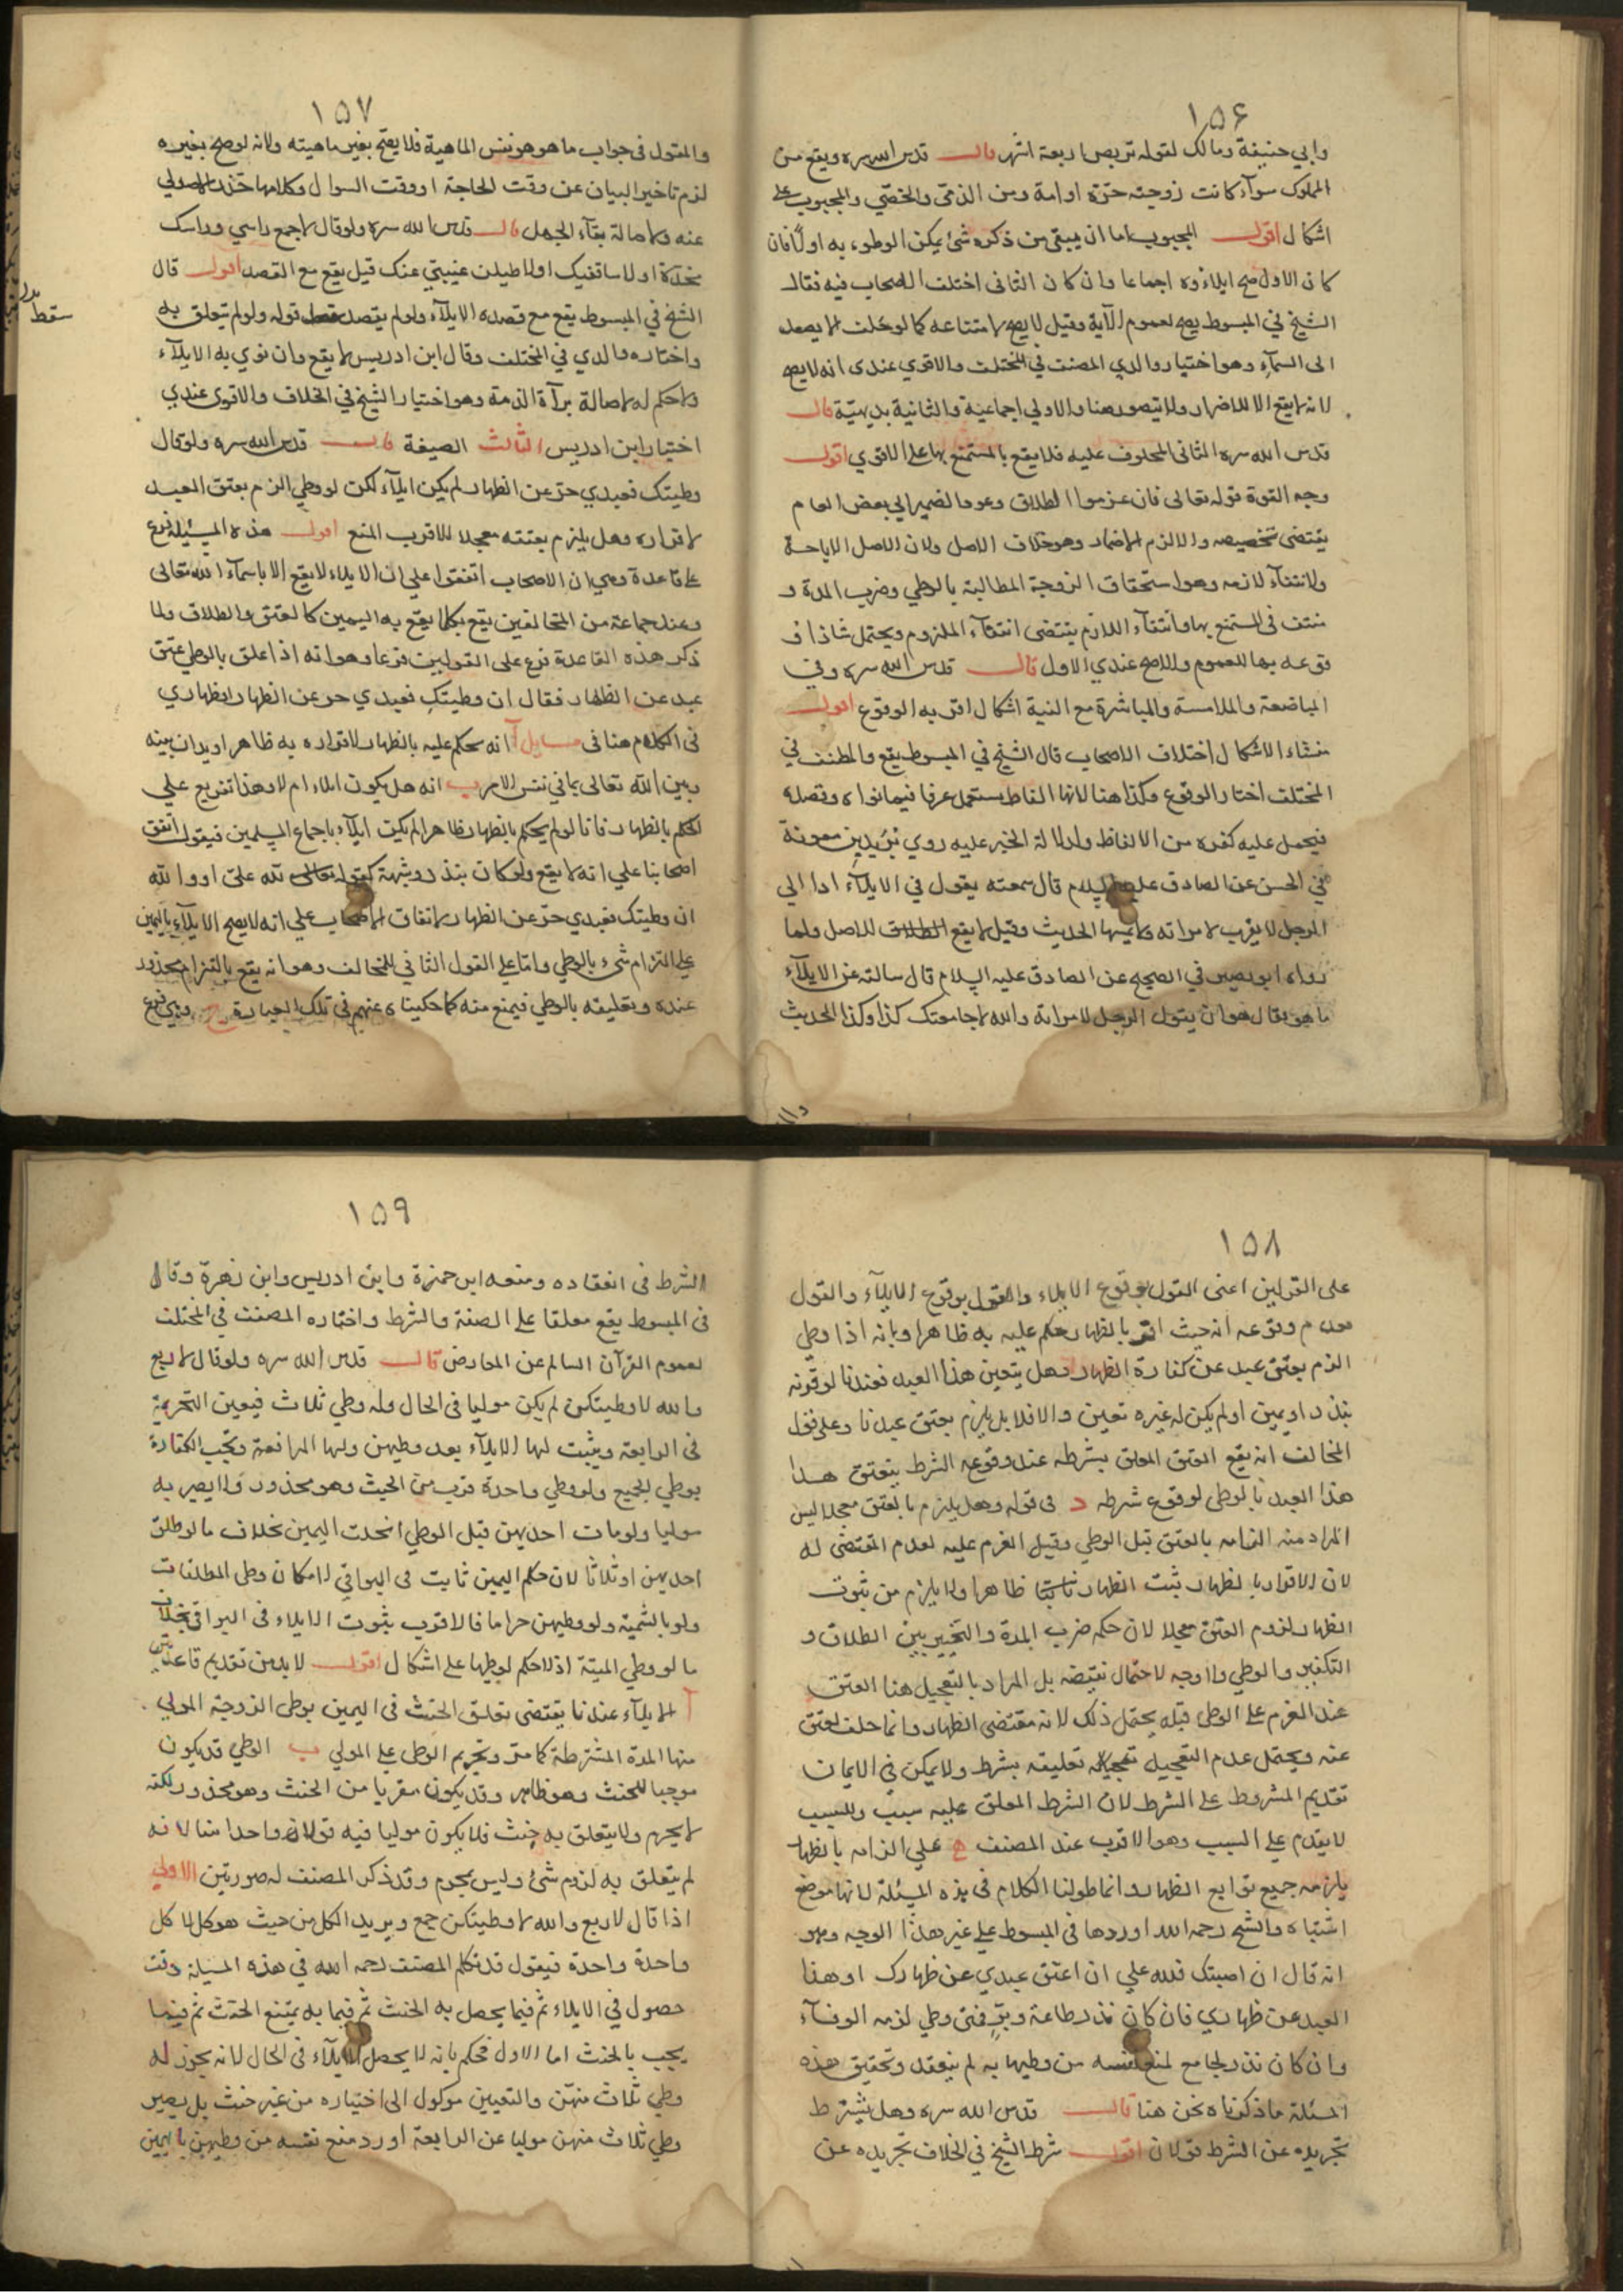 ١٥۶
وابي حنيفة ومالك لقوله تربص اربعة اشهر قال قدس الله سره ويقع من
المملوك سوآء كانت زوجته حرة او امة ومن الذمى والخصّي والمجبوب على
اشكال اقول المجبوب اما ان يبقى من ذكره شئ يمكن الوطوء به اولا فان
كان الاول صح ايلاؤه اجماعا وان كان الثانى اختلف الاصحاب فيه فقال
الشيخ في المبسوط يصح لعموم الآية وقيل لا يصح لامتناعه كما لو حلف لا يصعد
الى السمآء وهو اختيار والدي المصنف في المختلف والاقوي عندى انه لا يصح
لانه لا يقع الا للاضرار ولا يتصور هنا والاولي اجماعية والثانية بديهيّة قال
قدس الله سره الثانى المحلوف عليه فلا يقع بالمستمتع بها على الاقوي اقول
وجه القوة قوله تعالى فان عزموا الطلاق وعود الضمير الي بعض العام
يقتضى تخصيصه والا لزم الاضمار وهو خلاف الاصل ولان الاصل الاباحة
ولانتفآء لازمه وهو استحقاق الزوجة المطالبة بالوطي وضرب المدة و
منتف فى المستمتع بها وانتفآء اللازم يقتضى انتفآء الملزوم ويحتمل شاذا
وقوعه بها للعموم والاصح عندي الاول قال قدس الله سره وفي
المباضعة والملامسة والمباشرة مع النية اشكال اقربه الوقوع اقول
منشاء الاشكال اختلاف الاصحاب قال الشيخ في المبسوط يقع والمصنف في
المختلف اختار الوقوع وكذا هنا لانها الفاظ يستعمل عرفا فيما نواه وقصده
فيحمل عليه كغيره من الالفاظ ولدلالة الخبر عليه روي بريد بن معوية
في الحسن عن الصادق عليه السلام قال سمعته يقول في الايلآء اذا الي
الرجل لا يقرب لامراته ولا يمسها الحديث وقيل لا يقع للاصل ولما
رواه ابو بصير في الصحيح عن الصادق عليه السلام قال سالته عن الايلآء
ما هو فقال هو ان يقول الرجل لامراته والله لا جامعتك كذا وكذا الحديث
١٥٧
والمقول فى جواب ما هو هو نفس الماهية فلا يصح بغير ماهيته ولانه لو صح بغيره
لزم تاخير البيان عن وقت الحاجة او وقت السوال وكلاهما
عنه ولاصالة بقآء الحل قال قدس الله سره ولو قال لا جمع راسي وراسك
مخدّة او لا ساقفيك او لا طيلن غيبتي عنك قيل يقع مع القصد اقول قال
الشيخ في المبسوط يقع مع قصده الايلآء ولو لم يقصد سقط قوله ولو لم يتعلق به
سقط
واختاره والدي في المختلف وقال ابن ادريس لا يقع وان نوي به الايلآء
ولا حكم له لاصالة برآة الذمة وهو اختيار الشيخ في الخلاف والاقوى عندي
اختيار ابن ادريس الثالث الصيغة قال قدس الله سره ولو قال
وطيتك فعبدي حر عن الظهار لم يكن ايلآء لكن لو وطي الزم بعتق العبد
لاقراره وهل يلزم بعتقه معجلا الاقرب المنع اقول هذه المسئلة فرع
على قاعدة وهي ان الاصحاب اتفقوا علي ان الايلاء لا يقع الا باسمآء الله تعالى
وعند جماعة من المخالفين يقع بكلما يقع به اليمين كالعتق والطلاق ولما
ذكر هذه القاعدة فرع على القولين فرعا وهو انه اذا علق بالوطي عتق
عبد عن الظهار فقال ان وطيتكِ فعبدي حر عن الظهار اظهاري
فى الكلام هنا فى مسايل آ انه يحكم عليه بالظهار لاقراره به ظاهرا ويدان بينه
وبين الله تعالى بما في نفس الامر ب انه هل يكون ايلاء ام لا وهذا تفريع علي
الحكم بالظهار فانا لو لم يحكم بالظهار ظاهرا لم يكن ايلآء باجماع المسلمين فيقول اتفق
اصحابنا علي انه لا يقع ولو كان بنذر وشبهه كقوله لله علىّ او والله
ان وطيتك فعبدي حرّ عن الظهار لاتفاق الاصحاب علي انه لا يصح الايلآء باليمين
علي التزام شيء بالوطي واما على القول الثاني للمخالف وهو انه يقع بالتزام محذور
عنده وتعليقه بالوطي فيمنع منه كما حكيناه عنهم فى تلك العبارة وهي فرع
١٥٨
على القولين اعنى القول بوقوع الايلاء والقول بوقوع الايلآء والقول
بعدم وقوعه انه حيث اقر بالظهار حكم عليه به ظاهرا وبانه اذا وطي
الزم بعتق عبد عن كفارة الظهار وهل يتعين هذا العبد فعندنا لو قرنه
بنذر او يمين او لم يكن له غيره تعين والا فلا بل يلزم بعتق عبد ما وعلى قول
المخالف انه يقع العتق المعلق بشرطه عند وقوع الشرط بتعتق هذا
هذا العبد بالوطى لوقوع شرطه د فى قوله وهل يلزم بالعتق معجلا ليس
المراد منه الزامه بالعتق قبل الوطي وقبل العزم عليه لعدم المقتضى له
لان الاقرار بالظهار ثبت الظهار ظاهرا ولا يلزم من ثبوت
الظهار لزوم العتق معجلا لان حكمه ضرب المدة والتخيير بين الطلاق و
التكفير والوطي ولا وجه لاحتمال نقيضه بل المراد بالتعجيل هنا العتق
عند العزم على الوطى قبله يحتمل ذلك لانه مقتضى الظهار وانما حلف لعتق
عنه ويحتمل عدم التعجيل تعليقه بشرط ولا يمكن في الايمان
تقديم المشروط على الشرط لان الشرط المعلق عليه سبب والمسبب
لا يتقدم على السبب وهو الاقرب عند المصنف علي الزامه بالظهار
يلزمه جميع توابع الظهار وانما طولنا الكلام فى هذه المسئلة لانها موضع
اشتباه والشيخ رحمه الله اوردها فى المبسوط على غير هذا الوجه وهو
انه قال ان اصبتك فلله علي ان اعتق عبدي عن ظهارك او هذا
العبد عن ظهاري فان كان نذر طاعة وبرّ فمتى وطي لزمه الوفآء
وان كان نذر لجاج مع لمنع نفسه من وطيها به لم ينعقد وتحقيق هذه
المسئلة ما ذكرناه نحن هنا قال قدس الله سره وهل يشترط
تجريده عن الشرط قولان اقول شرط الشيخ في الخلاف تجريده عن
١٥٩
الشرط فى انعقاده ومنعه ابن حمزة وابن ادريس وابن زهرة وقال
فى المبسوط يقع معلقا على الصفة والشرط واختاره المصنف في المختلف
لعموم القرآن السالم عن المعارض قال قدس الله سره ولو قال لاربع
والله لا وطيتكن لم يكن موليا فى الحال وله وطي ثلاث فيعين التحريم
فى الرابعة ويثبت لها الايلآء بعد وطيهن ولها المرافعة وتجب الكفارة
بوطي الجميع ولو وطي واحدة قرب من الحنث وهو محذور ولا يصير به
موليا ولو مات احديهن قبل الوطي انحلت اليمين بخلاف ما لو طلق
احديهن او ثلاثا لان حكم اليمين ثابت فى البواقي لامكان وطى المطلقات
ولو بالشبهة ولو وطيهن حراما فالاقرب بثبوت الايلاء فى البواقى بخلاف
ما لو وطي الميتة اذ لا حكم لوطيها على اشكال اقول لا بد من تقديم قاعدتين
آ الايلآء عندنا يقتضى تعلق الحنث فى اليمين بوطى الزوجة المولي
منها المدة المشترطة كما مر وتحريم الوطى على المولي ب الوطي قد يكون
موجبا للحنث وهو ظاهر وقد يكون مقربا من الحنث وهو محذور لكنه
لا يحرم ولا يتعلق به حنث فلا يكون موليا فيه قولان واحدا منا لانه
لم يتعلق به لزوم شئ وليس بمحرم وقد ذكر المصنف له صورتين الاولي
اذا قال لاربع والله لا وطيتكن جمع ويريد الكل من حيث هو كل لا كل
واحدة واحدة فيقول قد تكلم المصنف رحمه الله في هذه المسيلة وقت
حصول في الايلاء ثم فيما يحصل به الحنث ثم فيما به يمتنع الحنث ثم فيما
يجب بالحنث اما الاول فحكم بانه لا يحصل الايلآء فى الحال لانه يجوز له
وطي ثلاث منهن والتعيين موكول الى اختياره من غير حنث بل يصير
وطي ثلاث منهن موليا عن الرابعة او رد منع نفسه من وطيهن باليمين